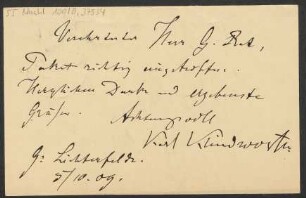 Verehrtester Herr G. Rat,
Paket richtig eingetroffen.
Herzlichen Dank und ergebenste
Grüße. Achtungsvoll
Karl Klindworth
Gr. Lichterfelde.
5/10.09.